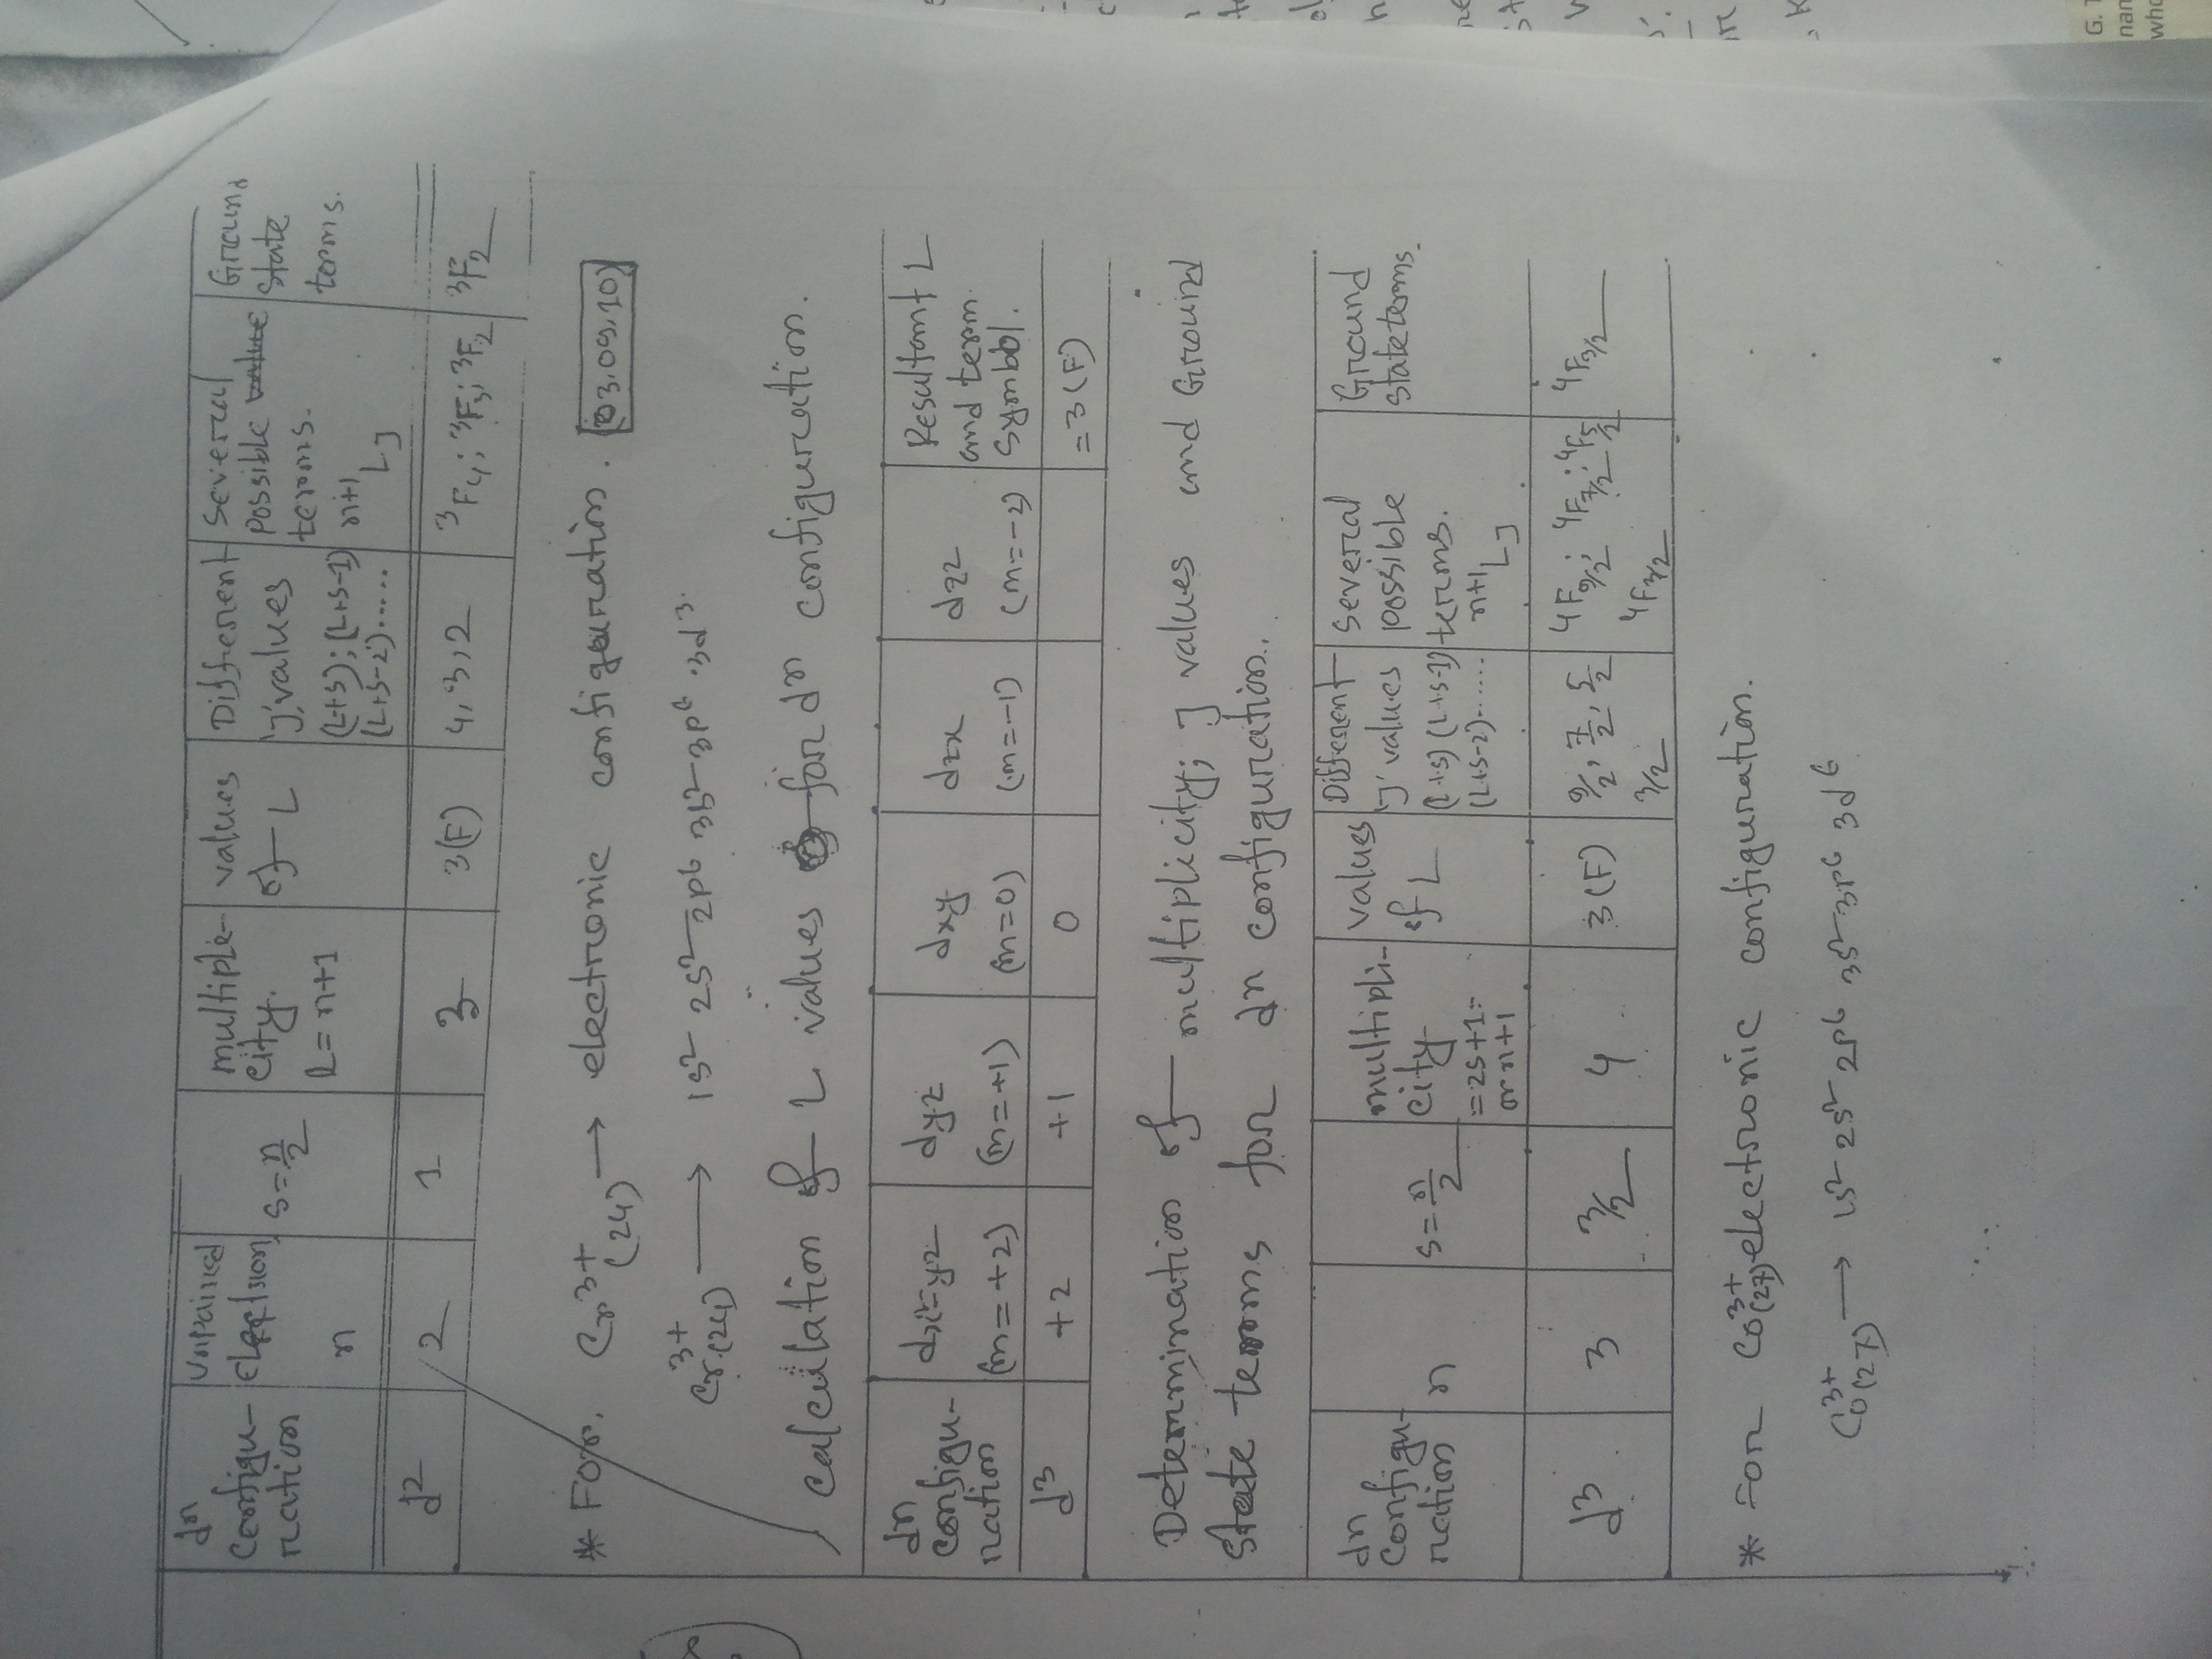 dn configuration | Unpaired electron n | s = n/2 | multiplecity. R = n+1 | values of L | Different 'J' values (L+S); (L+S-1) (L+S-2)..... | Several possible terms. n+1 L J | Ground state terms.
d2 | 2 | 1 | 3 | 3(F) | 4, 3, 2 | ³F₄; ³F₃; ³F₂ | ³F₂
* For. Cr³⁺ (24) → electronic configuration. (03.09.10)
Cr³⁺(24) → 1s² 2s² 2p⁶ 3s² 3p⁶ 3d³.
Calculation of L values for dn configuration.
dn configuration | dx²-y² (m = +2) | dyz (m = +1) | dxy (m=0) | dzx (m=-1) | dz² (m=-2) | Resultant L and term symbol.
d3 | +2 | +1 | 0 | = 3(F)
Determination of multiplicity; J values and Ground
state terms for dn configuration.
dn configuration | n | s = n/2 | multiplicity = 2s+1 = or n+1 | values of L | Different 'J' values (L+S) (L+S-1) (L+S-2)...... | Several possible terms. n+1 L J | Ground state terms.
d3 | 3 | 3/2 | 4 | 3(F) | 9/2, 7/2, 5/2 3/2 | ⁴F9/2; ⁴F7/2; ⁴F5/2 ⁴F3/2 | ⁴F3/2
* For Co³⁺(27) electronic configuration.
Co³⁺(27) → 1s² 2s² 2p⁶ 3s² 3p⁶ 3d⁶
G.
nan
who